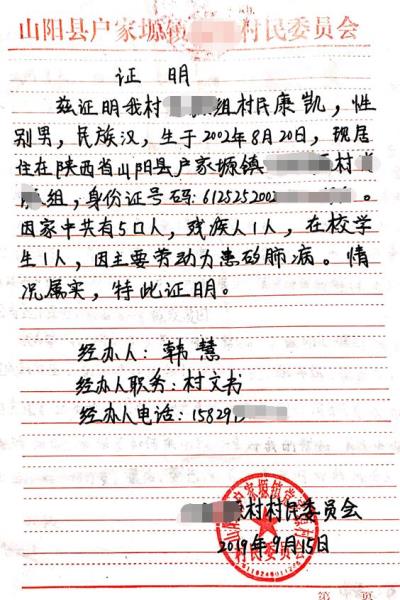 山阳县户家塬镇 村民委员会
证 明
兹证明我村 组村民康凯，性
别男，民族汉，生于2002年8月20日，现居
住在陕西省山阳县户家塬镇 村
组，身份证号码：6125252002 。
因家中共有5口人，残疾人1人，在校学
生1人，因主要劳动力患矽肺病。情
况属实，特此证明。
经办人：韩慧
经办人职务：村文书
经办人电话：15829
村村民委员会
2019年9月15日
第 页